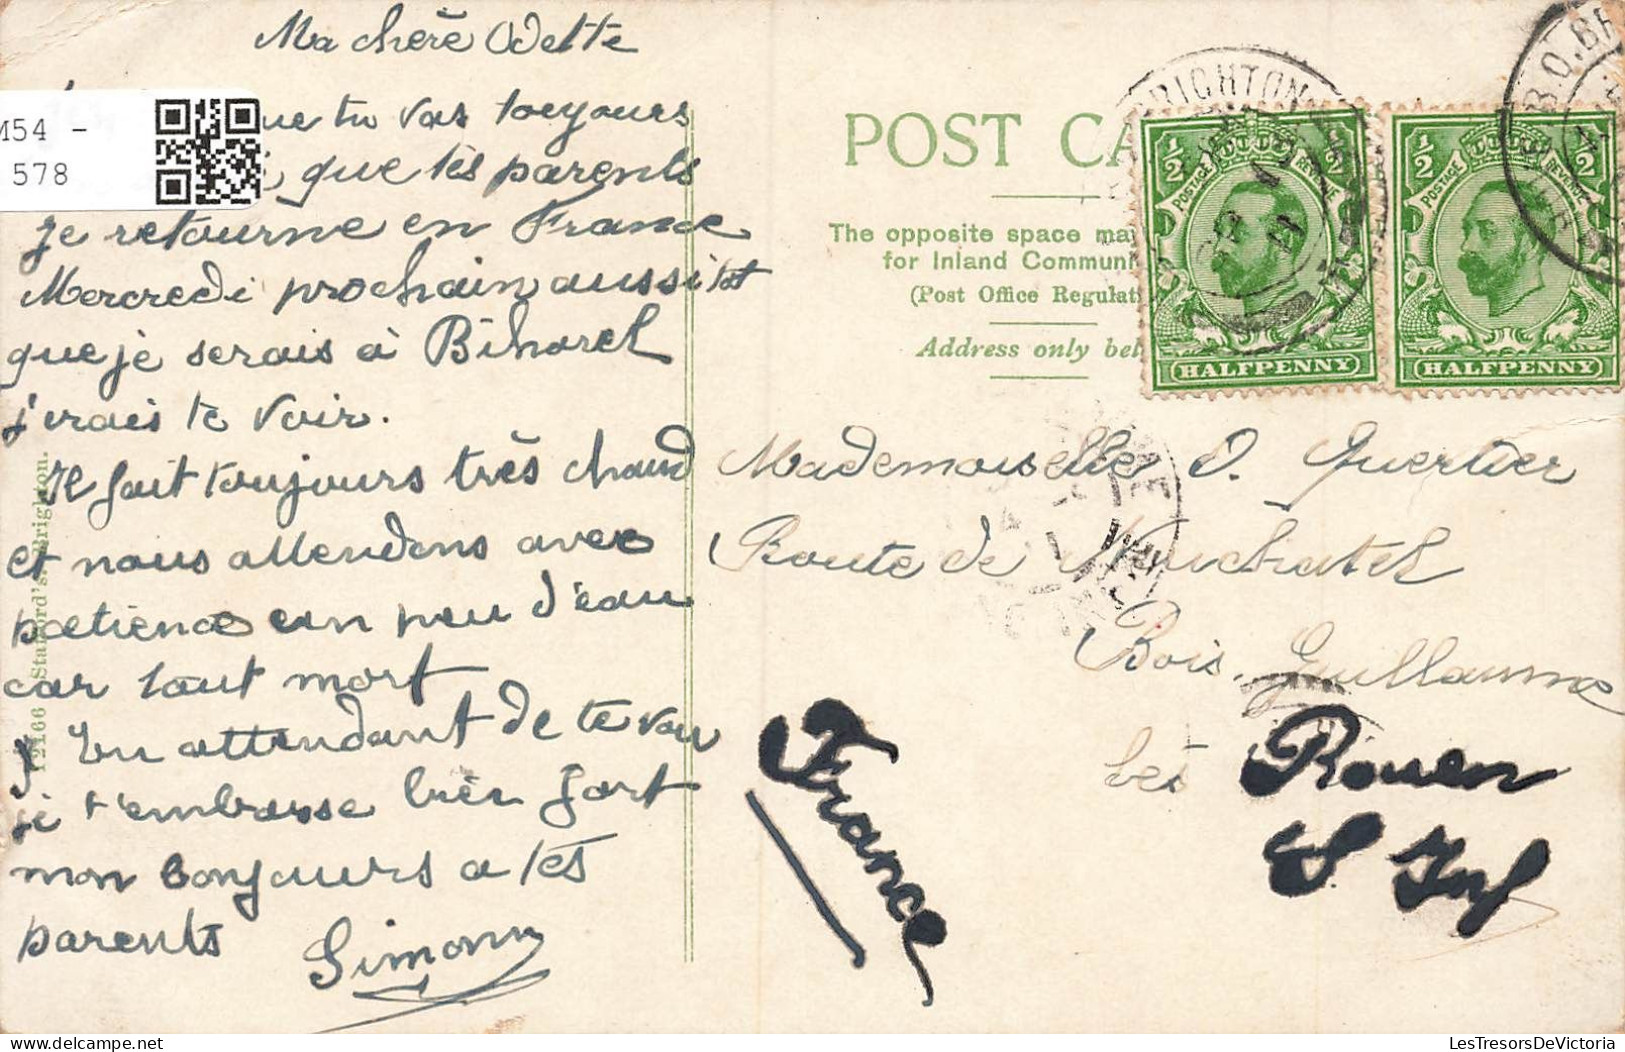 Ma chère Odette
que tu vas toujours
que tès parents
je retourne en France
Mercredi prochain aussitot
que je serais à Bihorel
j'irais te voir.
Il fait toujours très chaud
et nous attendons avec
patience un peu d'eau
car tout mort
En attendant de te voir
je t'embrasse bien fort
mon bonjours a tès
parents
Simonne
M54 -
578
12166 Stafford's. Brighton.
POST CA
The opposite space may
for Inland Commun
(Post Office Regulati
Address only bel
BRIGHTON
½ ½
POSTAGE REVENUE
HALFPENNY
½ ½
POSTAGE REVENUE
HALFPENNY
B.O.BR
Mademoiselle O. Quertier
Route de Neuchatel
Bois. Guillaume
lès Rouen
S. Inf
France
LesTresorsDeVictoria